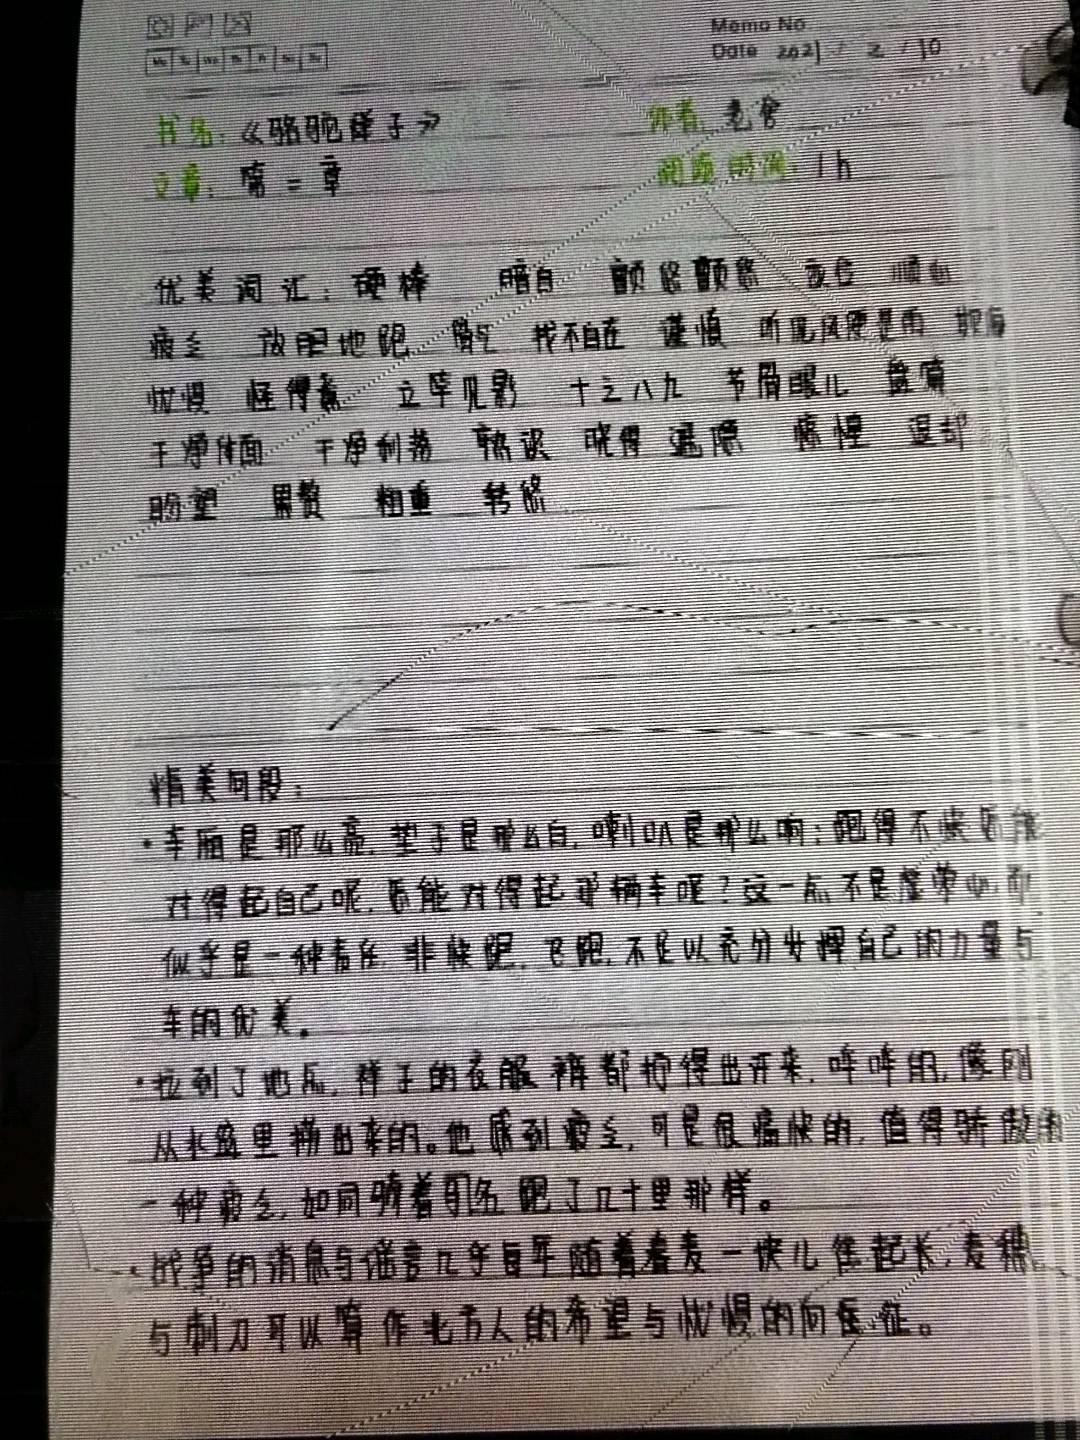 Memo No
Date 2021 / 2 / 10
书名：《骆驼祥子》 作者：老舍
文章：第二章 阅读时间：1h
优美词汇：硬棒 暗自 颤悠颤悠
疲乏 放胆地跑 找不自在 谨慎 听见风便是雨
忧惧 怪得意 立竿见影 十之八九 节骨眼儿 盘算
干净体面 干净利落 熟识 晓得 退却
盼望 累赘 粗重 转悠
精美句段：
·车厢是那么亮，垫子是那么白，喇叭是那么响；跑得不快怎能
对得起自己呢，怎能对得起那辆车呢？这一点不是虚荣心，而
似乎是一种责任，非快跑，飞跑，不足以充分发挥自己的力量与
车的优美。
·拉到了地点，祥子的衣服裤都拧得出汗来，哗哗的，像刚
从水盆里捞出来的。他感到疲乏，可是很痛快的，值得骄傲的
一种疲乏，如同骑着名马跑了几十里那样。
·战争的消息与谣言几乎每年随着春麦一块儿往起长，麦穗
与刺刀可以算作北方人的希望与忧惧的象征。